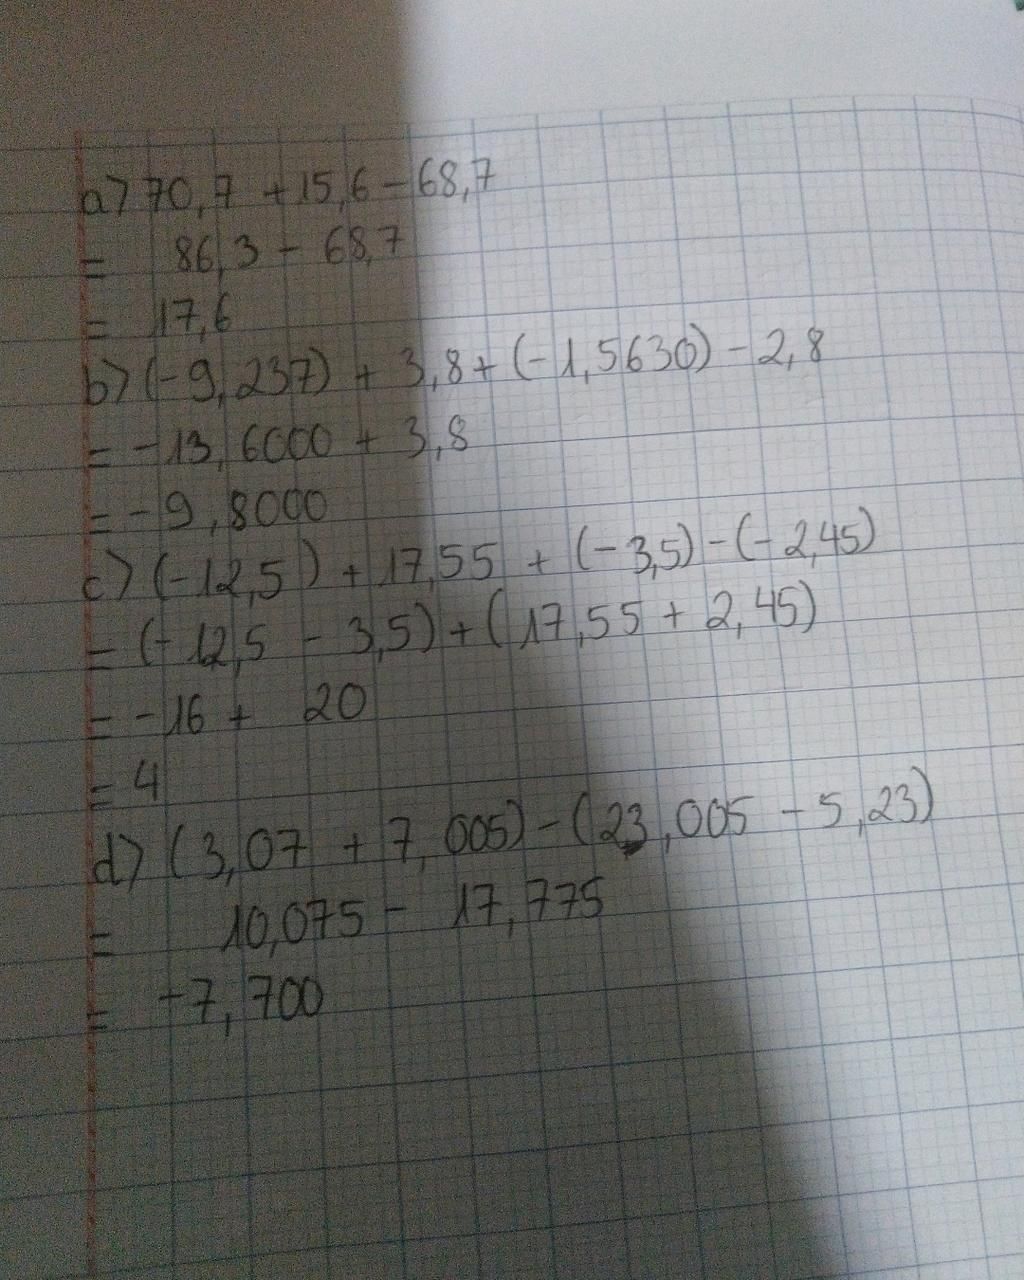 a) 70,7 + 15,6 - 68,7
= 86,3 - 68,7
= 17,6
b) (-9,237) + 3,8 + (-1,5630) - 2,8
= -13,6000 + 3,8
= -9,8000
c) (-12,5) + 17,55 + (-3,5) - (-2,45)
= (-12,5 - 3,5) + (17,55 + 2,45)
= -16 + 20
= 4
d) (3,07 + 7,005) - (23,005 - 5,23)
= 10,075 - 17,775
= -7,700